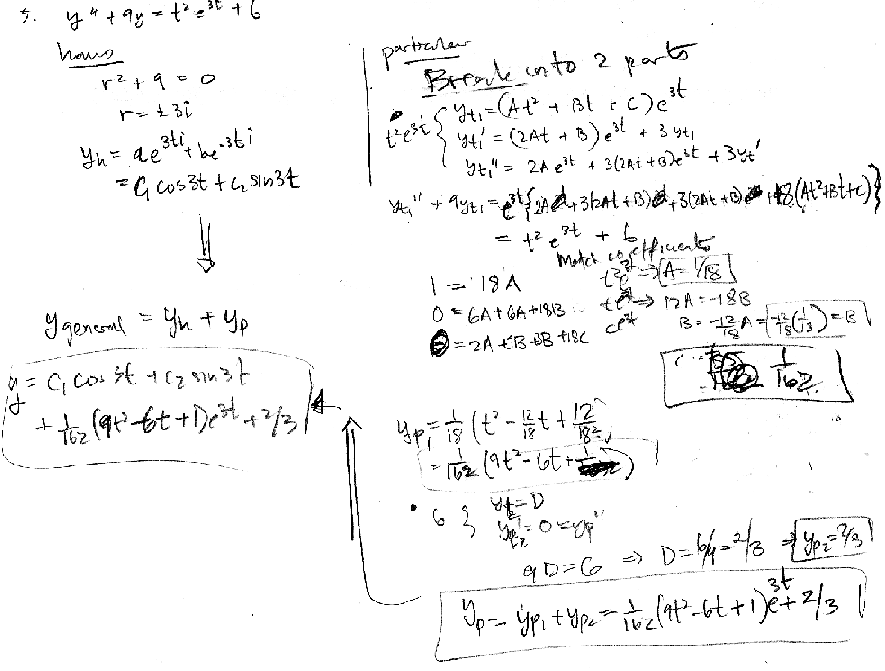 5. y'' + 9y = t² e^{3t} + 6
homo
r² + 9 = 0
r = ±3i
y_h = ae^{3ti} + be^{-3ti}
= C₁ cos3t + C₂ sin3t
y general = y_h + y_p
y = C₁ cos 3t + C₂ sin 3t
+ 1/162 (9t² - 6t + 1)e^{3t} + 2/3
particular
Break into 2 parts
t²e^{3t} { y_{t1} = (At² + Bt + C)e^{3t}
y_{t1}' = (2At + B)e^{3t} + 3y_{t1}
y_{t1}'' = 2Ae^{3t} + 3(2At + B)e^{3t} + 3y_t'
y_{t1}'' + 9y_{t1} = e^{3t}{2A + 3(2At + B) + 3(2At + B) + 18(At² + Bt + C)}
= t² e^{3t} + 6
Match coefficients
1 = 18A t²e^{3t} ⇒ A = 1/18
0 = 6A + 6A + 18B te^{3t} ⇒ 12A = -18B
B = -12/18 A = -12/18 (1/3) = B
0 = 2A + 3B + 3B + 18C ce^{3t}
1/162
y_{p1} = 1/18 (t² - 12/18 t + 12/18²)
= 1/162 (9t² - 6t +
• 6 } y_{t2} = D
y_{p2}' = 0 = y_p''
9D = 6 ⇒ D = 6/9 = 2/3 ⇒ y_{p2} = 2/3
y_p = y_{p1} + y_{p2} = 1/162 (9t² - 6t + 1)e^{3t} + 2/3